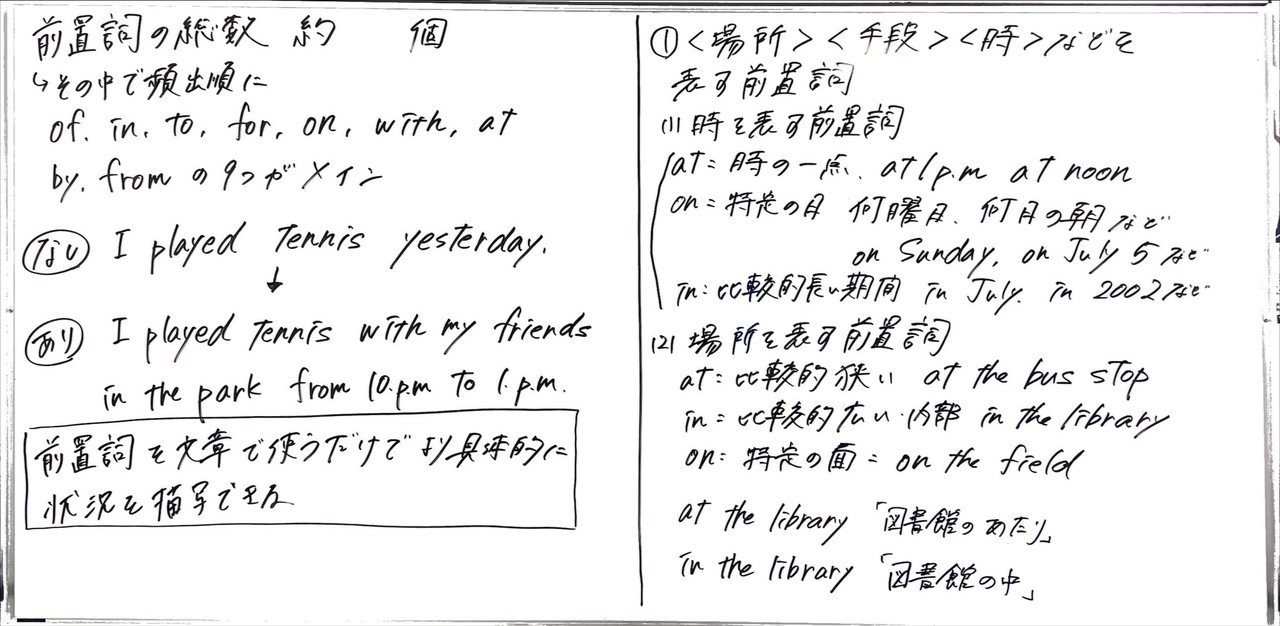 前置詞の総数 約 個
↳その中で頻出順に
of. in. to, for, on, with, at
by, from の9つがメイン
なし I played tennis yesterday.
↓
あり I played tennis with my friends
in the park from 10.p.m to 1.p.m.
前置詞を文章で使うだけでより具体的に
状況を描写できる
① <場所><手段><時>などを
表す前置詞
(1) 時を表す前置詞
at: 時の一点. at 1 p.m at noon
on: 特定の日 何曜日、何月の朝など
on Sunday, on July 5 など
in: 比較的長い期間 in July. in 2002など
(2) 場所を表す前置詞
at: 比較的狭い at the bus stop
in: 比較的広い・内部 in the library
on: 特定の面: on the field
at the library 「図書館のあたり」
in the library 「図書館の中」